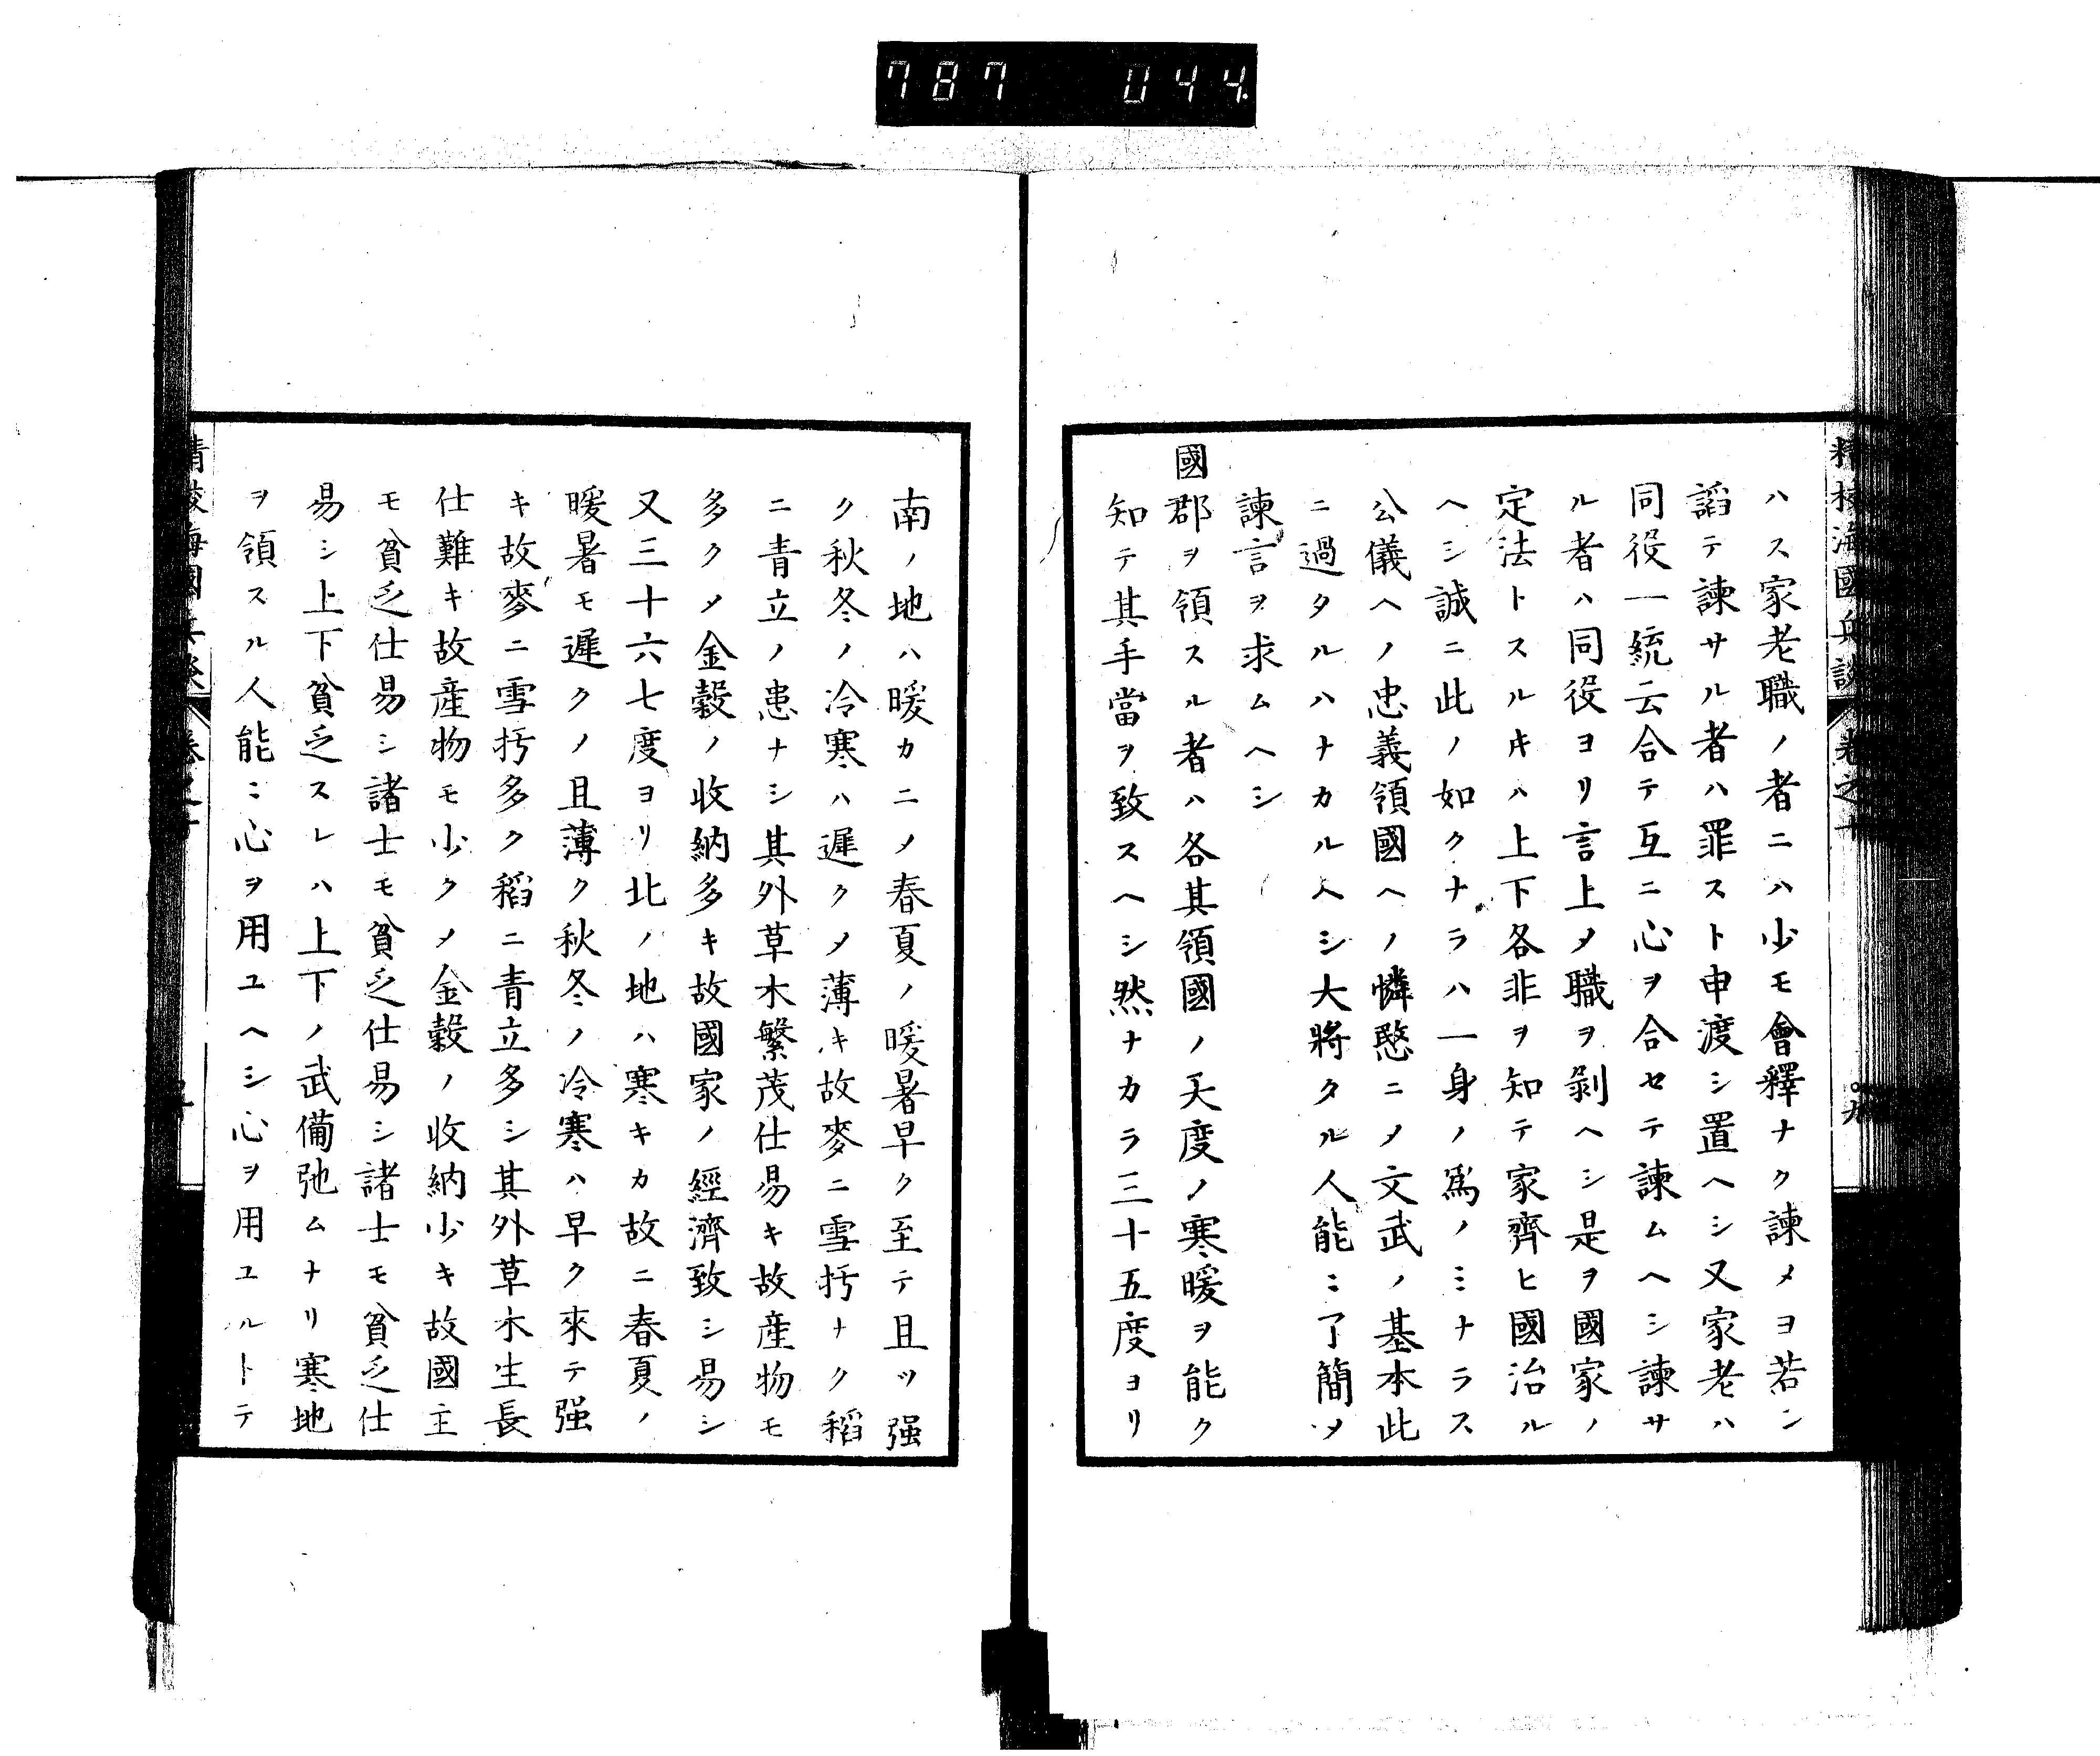 787 044
ハス家老職ノ者ニハ少モ會釋ナク諫メヨ若シ
謟テ諫サル者ハ罪スト申渡シ置ヘシ又家老ハ
同役一統云合テ互ニ心ヲ合セテ諫ムヘシ諫サ
ル者ハ同役ヨリ言上〆職ヲ剝ヘシ是ヲ國家ノ
定法トスルキハ上下各非ヲ知テ家齊ヒ國治ル
ヘシ誠ニ此ノ如クナラハ一身ノ爲ノミナラス
公儀ヘノ忠義領國ヘノ憐愍ニ〆文武ノ基本此
ニ過タルハナカルヘシ大將タル人能ニ了簡〆
諫言ヲ求ムヘシ
國郡ヲ領スル者ハ各其領國ノ天度ノ寒暖ヲ能ク
知テ其手當ヲ致スヘシ然ナカラ三十五度ヨリ
南ノ地ハ暖カニ〆春夏ノ暖暑早ク至テ且ツ强
ク秋冬ノ冷寒ハ遲ク〆薄キ故麥ニ雪抔ナク稻
ニ青立ノ患ナシ其外草木繁茂仕易キ故産物モ
多ク〆金穀ノ收納多キ故國家ノ經濟致シ易シ
又三十六七度ヨリ北ノ地ハ寒キカ故ニ春夏ノ
暖暑モ遲ク〆且薄ク秋冬ノ冷寒ハ早ク來テ强
キ故麥ニ雪抔多ク稻ニ青立多シ其外草木生長
仕難キ故産物モ少ク〆金穀ノ收納少キ故國主
モ貧乏仕易シ諸士モ貧乏仕易シ諸士モ貧乏仕
易シ上下貧乏スレハ上下ノ武備弛ムナリ寒地
ヲ領スル人能ニ心ヲ用ユヘシ心ヲ用ユルトテ